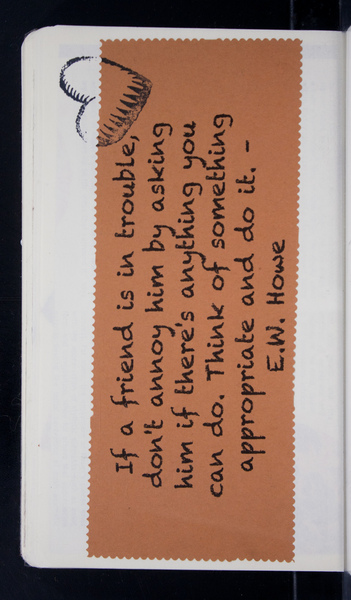 If a friend is in trouble,
don't annoy him by asking
him if there's anything you
can do. Think of something
appropriate and do it. -
E.W. Howe